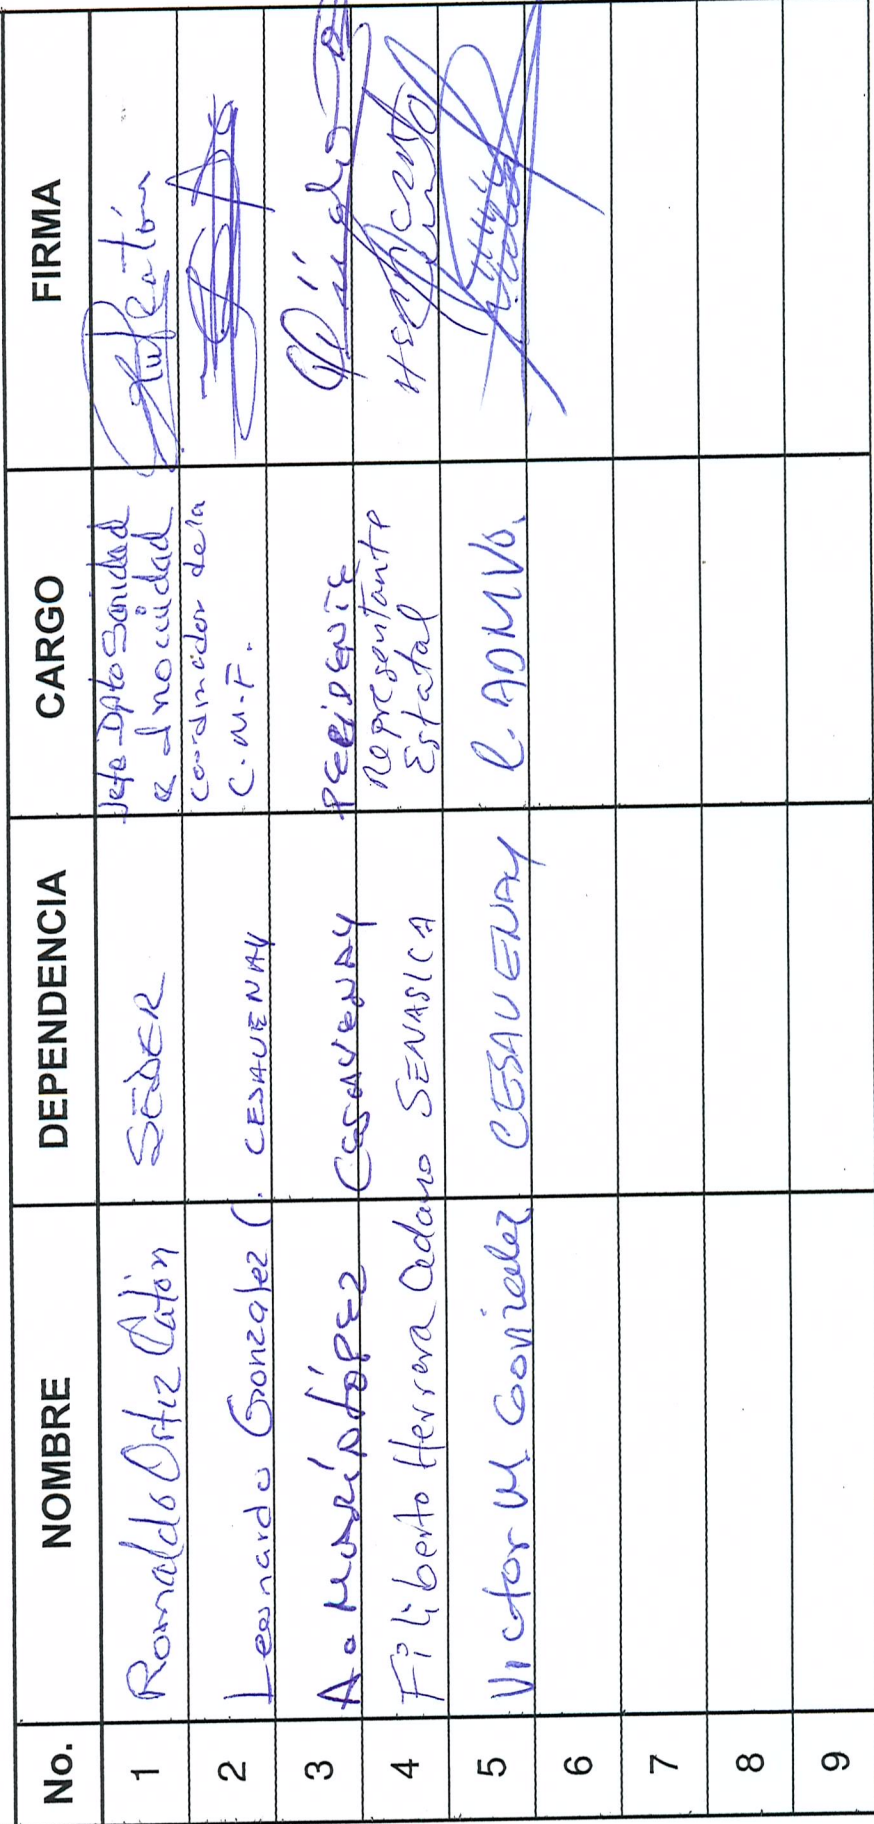 No. NOMBRE DEPENDENCIA CARGO FIRMA
1 Romaldo Ortiz Catón SEDER Jefe Dpto Sanidad
e Inocuidad
2 Leonardo Gonzalez C. CESAVENAY Coordinador de la
C.M.F.
3 A. Marín López CESAVENAY PRESIDENTE
4 Filiberto Herrera Cedano SENASICA Representante
Estatal
5 Victor M. Gonzalez CESAVENAY C. ADMVO.
6
7
8
9